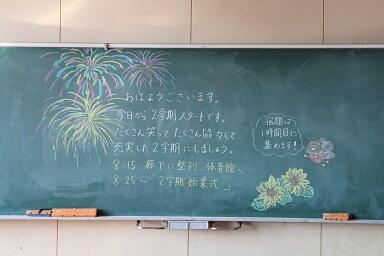 おはようございます。
今日から2学期スタートです。
たくさん笑って たくさん協力して
充実した2学期にしましょう。
8:15 廊下に整列、体育館へ
8:25〜「2学期始業式」
宿題は
1時間目に
集めます!